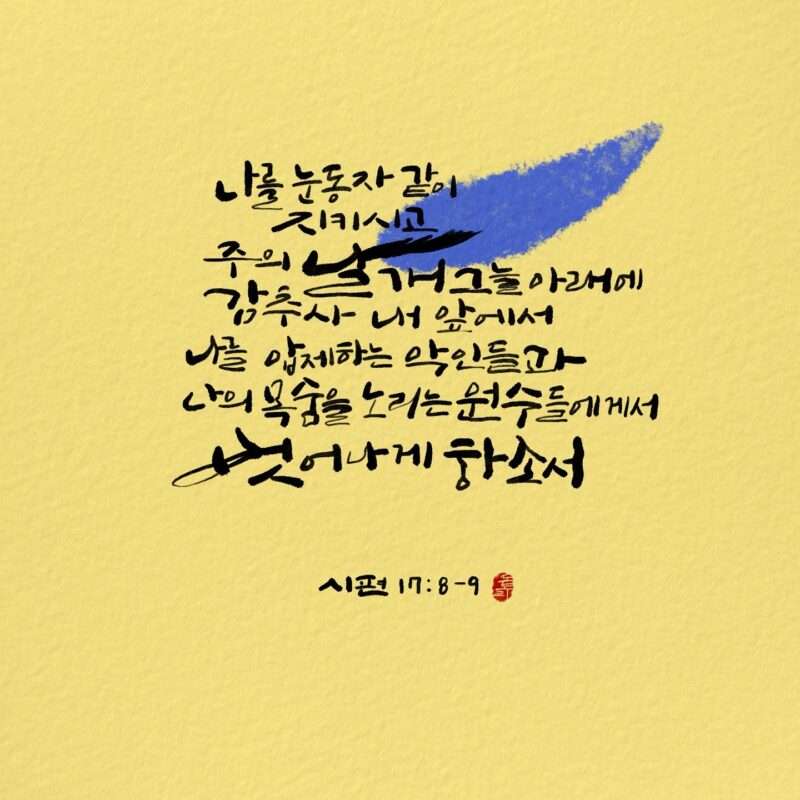 나를 눈동자 같이
지키시고
주의 날개 그늘 아래에
감추사 내 앞에서
나를 압제하는 악인들과
나의 목숨을 노리는 원수들에게서
벗어나게 하소서
시편 17:8-9